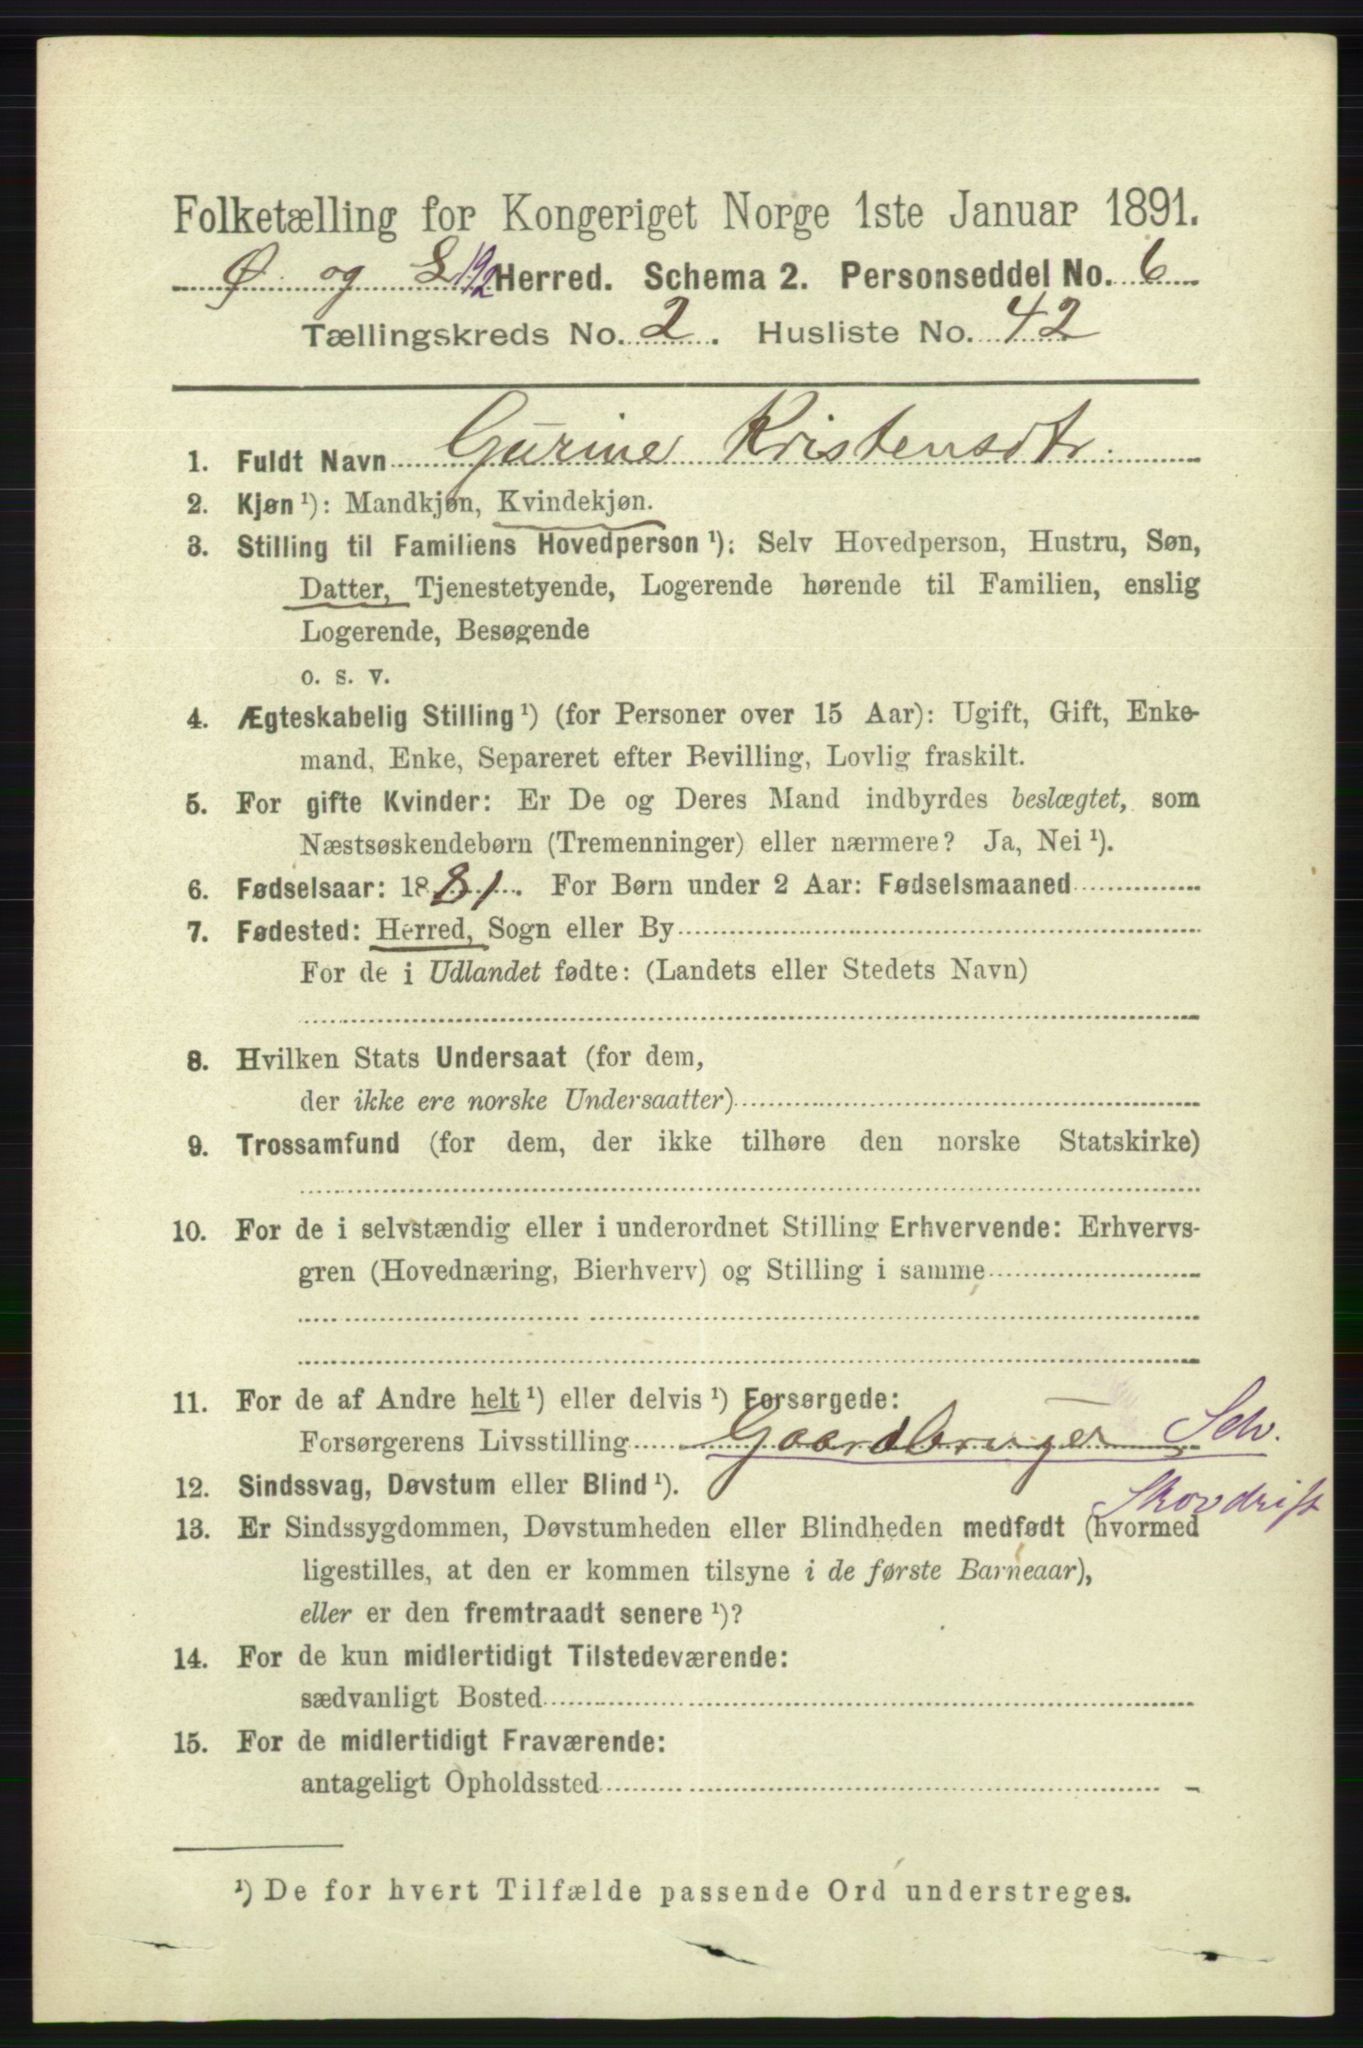 Folketælling for Kongeriget Norge 1ste Januar 1891.
Ø. og L Herred. Schema 2. Personseddel No. 6
Tællingskreds No. 2. Husliste No. 42
1. Fuldt Navn Gurine Kristensdtr.
2. Kjøn ¹): Mandkjøn, Kvindekjøn.
3. Stilling til Familiens Hovedperson ¹): Selv Hovedperson, Hustru, Søn,
Datter, Tjenestetyende, Logerende hørende til Familien, enslig
Logerende, Besøgende
o. s. v.
4. Ægteskabelig Stilling ¹) (for Personer over 15 Aar): Ugift, Gift, Enke-
mand, Enke, Separeret efter Bevilling, Lovlig fraskilt.
5. For gifte Kvinder: Er De og Deres Mand indbyrdes beslægtet, som
Næstsøskendebørn (Tremenninger) eller nærmere? Ja, Nei ¹).
6. Fødselsaar: 1881. For Børn under 2 Aar: Fødselsmaaned
7. Fødested: Herred, Sogn eller By
For de i Udlandet fødte: (Landets eller Stedets Navn)
8. Hvilken Stats Undersaat (for dem,
der ikke ere norske Undersaatter)
9. Trossamfund (for dem, der ikke tilhøre den norske Statskirke)
10. For de i selvstændig eller i underordnet Stilling Erhvervende: Erhvervs-
gren (Hovednæring, Bierhverv) og Stilling i samme
11. For de af Andre helt ¹) eller delvis ¹) Forsørgede:
Forsørgerens Livsstilling Gaardbruger Selv.
Skovdrift
12. Sindssvag, Døvstum eller Blind ¹).
13. Er Sindssygdommen, Døvstumheden eller Blindheden medfødt (hvormed
ligestilles, at den er kommen tilsyne i de første Barneaar),
eller er den fremtraadt senere ¹)?
14. For de kun midlertidigt Tilstedeværende:
sædvanligt Bosted
15. For de midlertidigt Fraværende:
antageligt Opholdssted
¹) De for hvert Tilfælde passende Ord understreges.